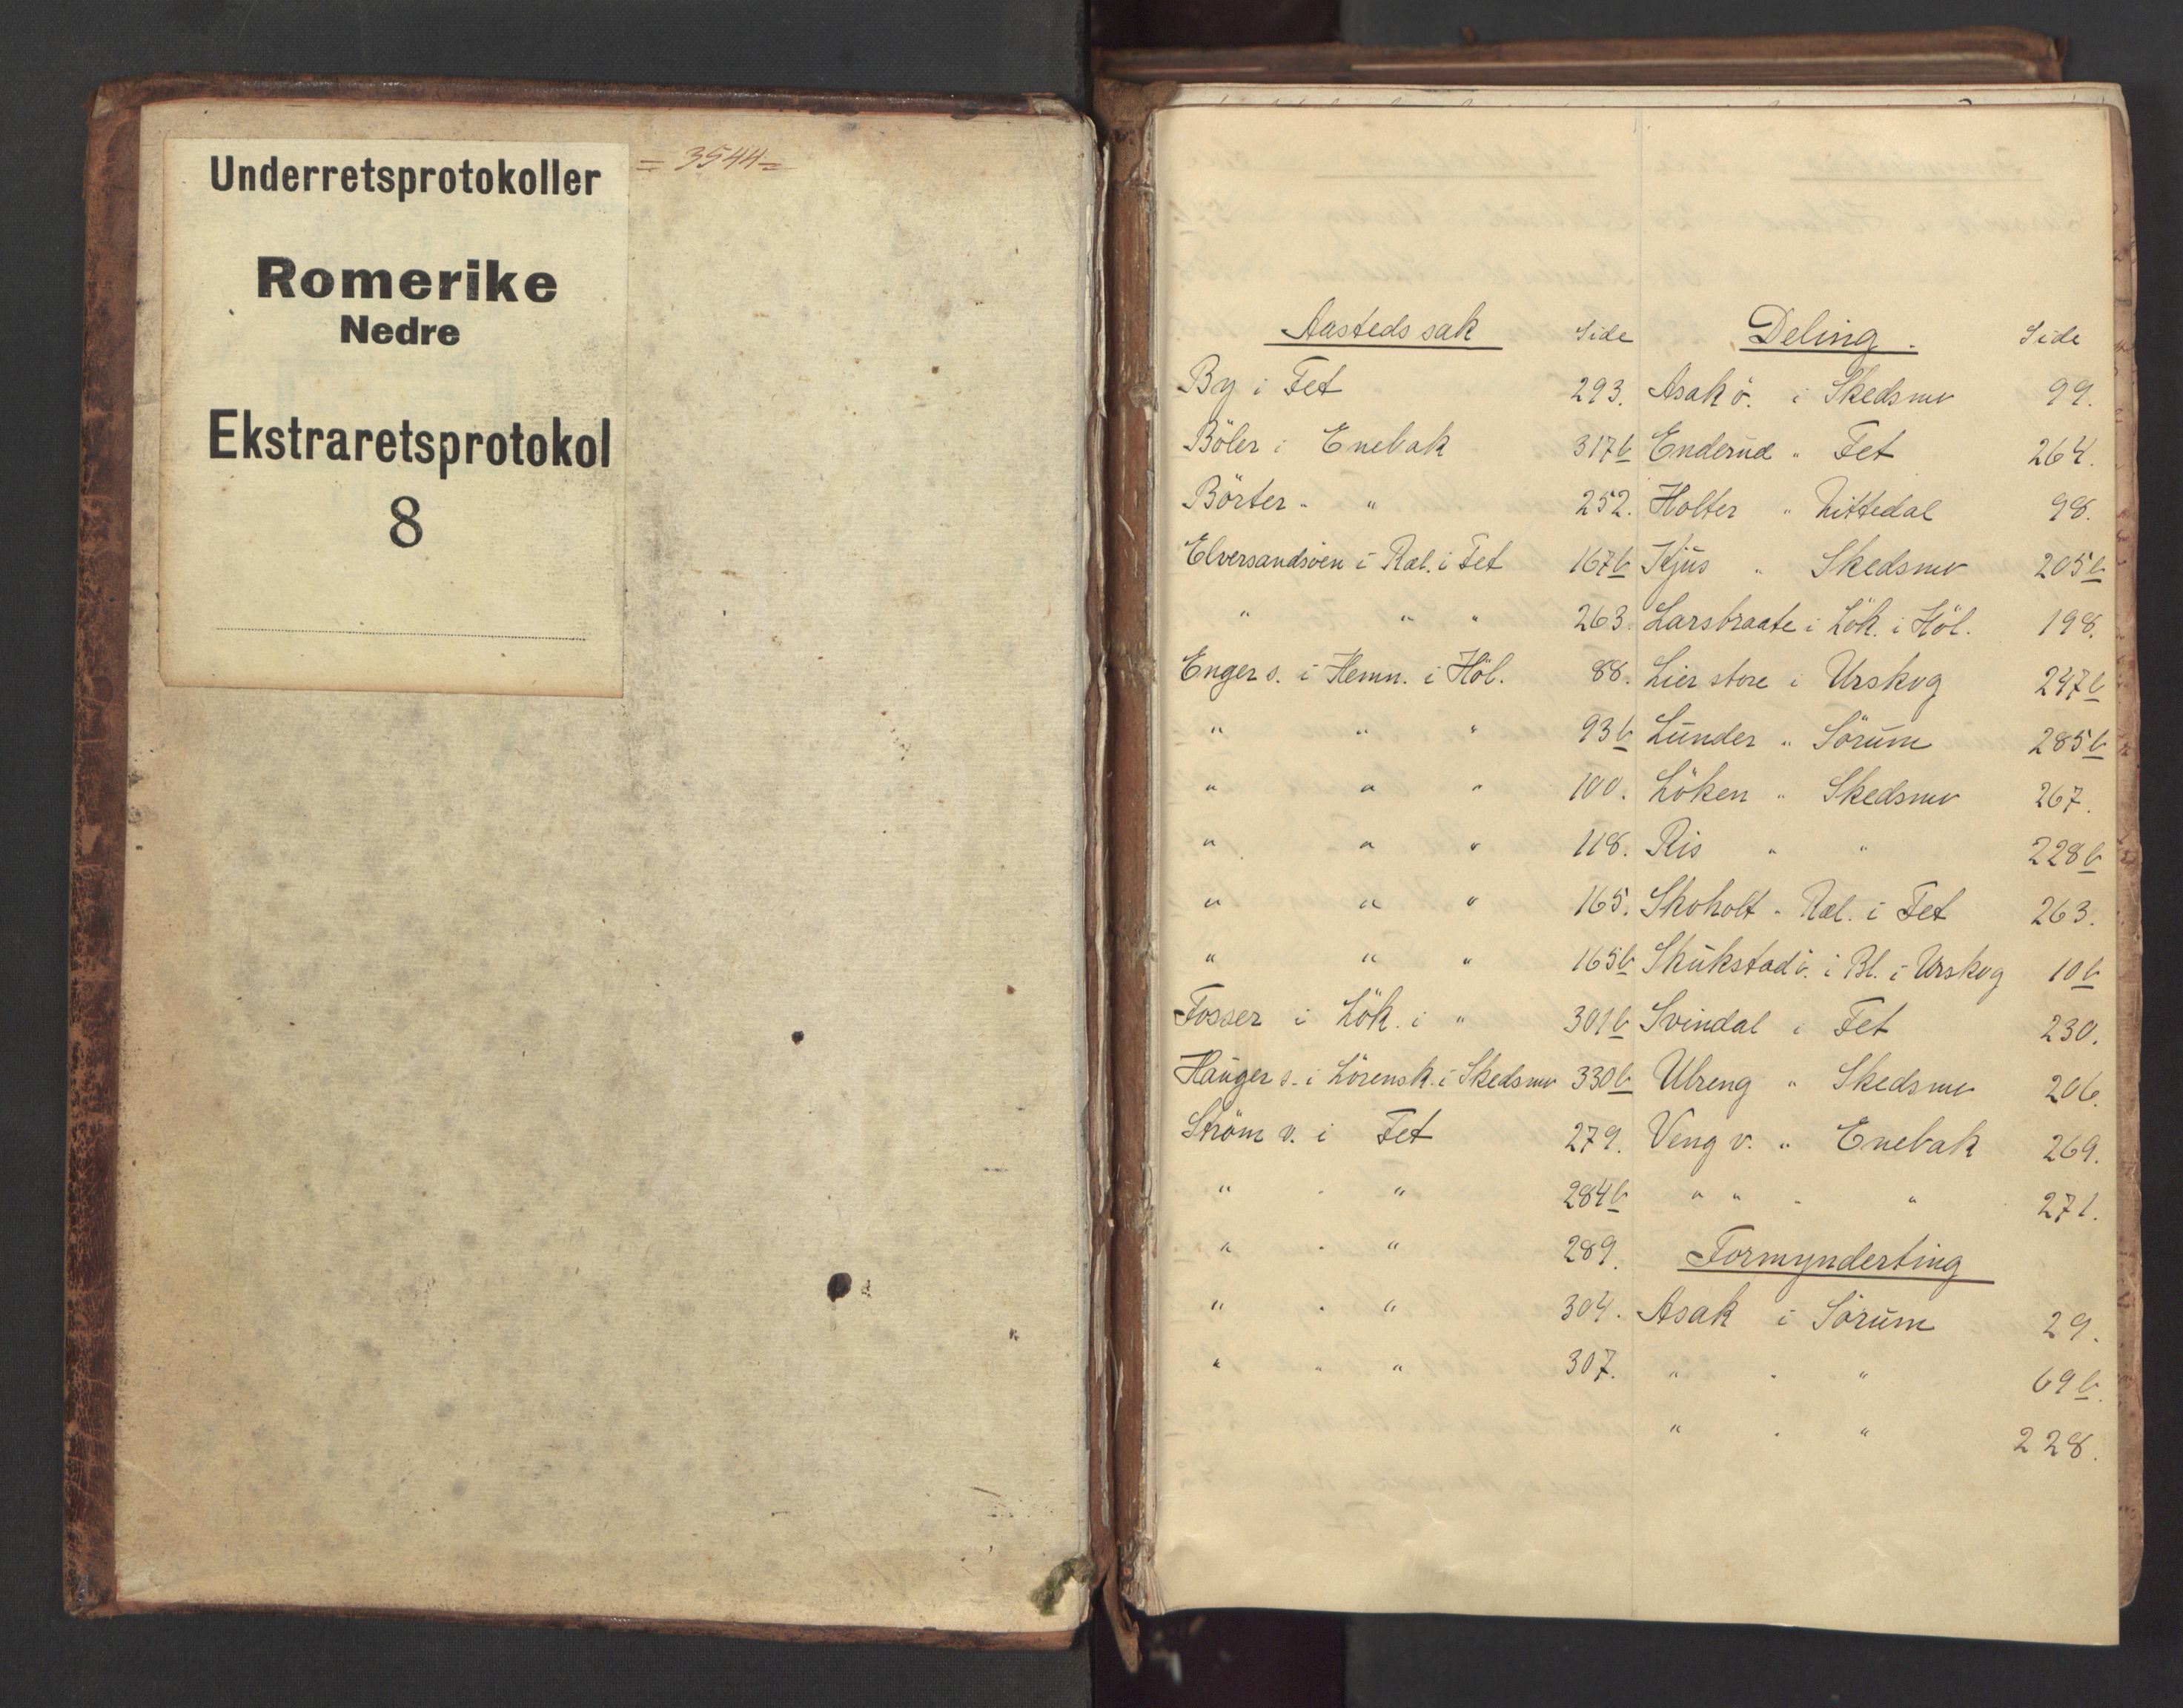 Underretsprotokoller
= 3544 =
Romerike
Nedre
Ekstraretsprotokol
8
Aasteds sak Side
By i Fet 293.
Böler i Enebak 317b
Börter " " 252.
Elversandsöen i Ræl. i Fet 167b
" " " 263.
Enger s. i Hemn. i Höl. 88.
" " " 93b
" " " 100.
" " " 118.
" " " 165.
" " " 165b
Fosser i Lök. i " 301b
Hauger s. i Lörensk. i Skedsmo 330b
Ström v. i Fet 279.
" " " 284b
" " " 289.
" " " 304.
" " " 307.
Deling. Side
Asak ö. i Skedsmo 99.
Enderud " Fet 264.
Holter " Nittedal 98.
Kjus " Skedsmo 205b
Larsbraate i Lök. i Höl. 198.
Lier store i Urskog 247b
Lunder " Sörum 285b
Löken " Skedsmo 267.
Ris " " 228b
Skoholt " Ræl. i Fet 263.
Skukstad ö. i Bl. i Urskog 10b
Svindal i Fet 230.
Ulreng " Skedsmo 206.
Veng v. " Enebak 269.
" " " " 271.
Formynderting
Asak i Sörum 29.
" " " 69b.
" " " 228.